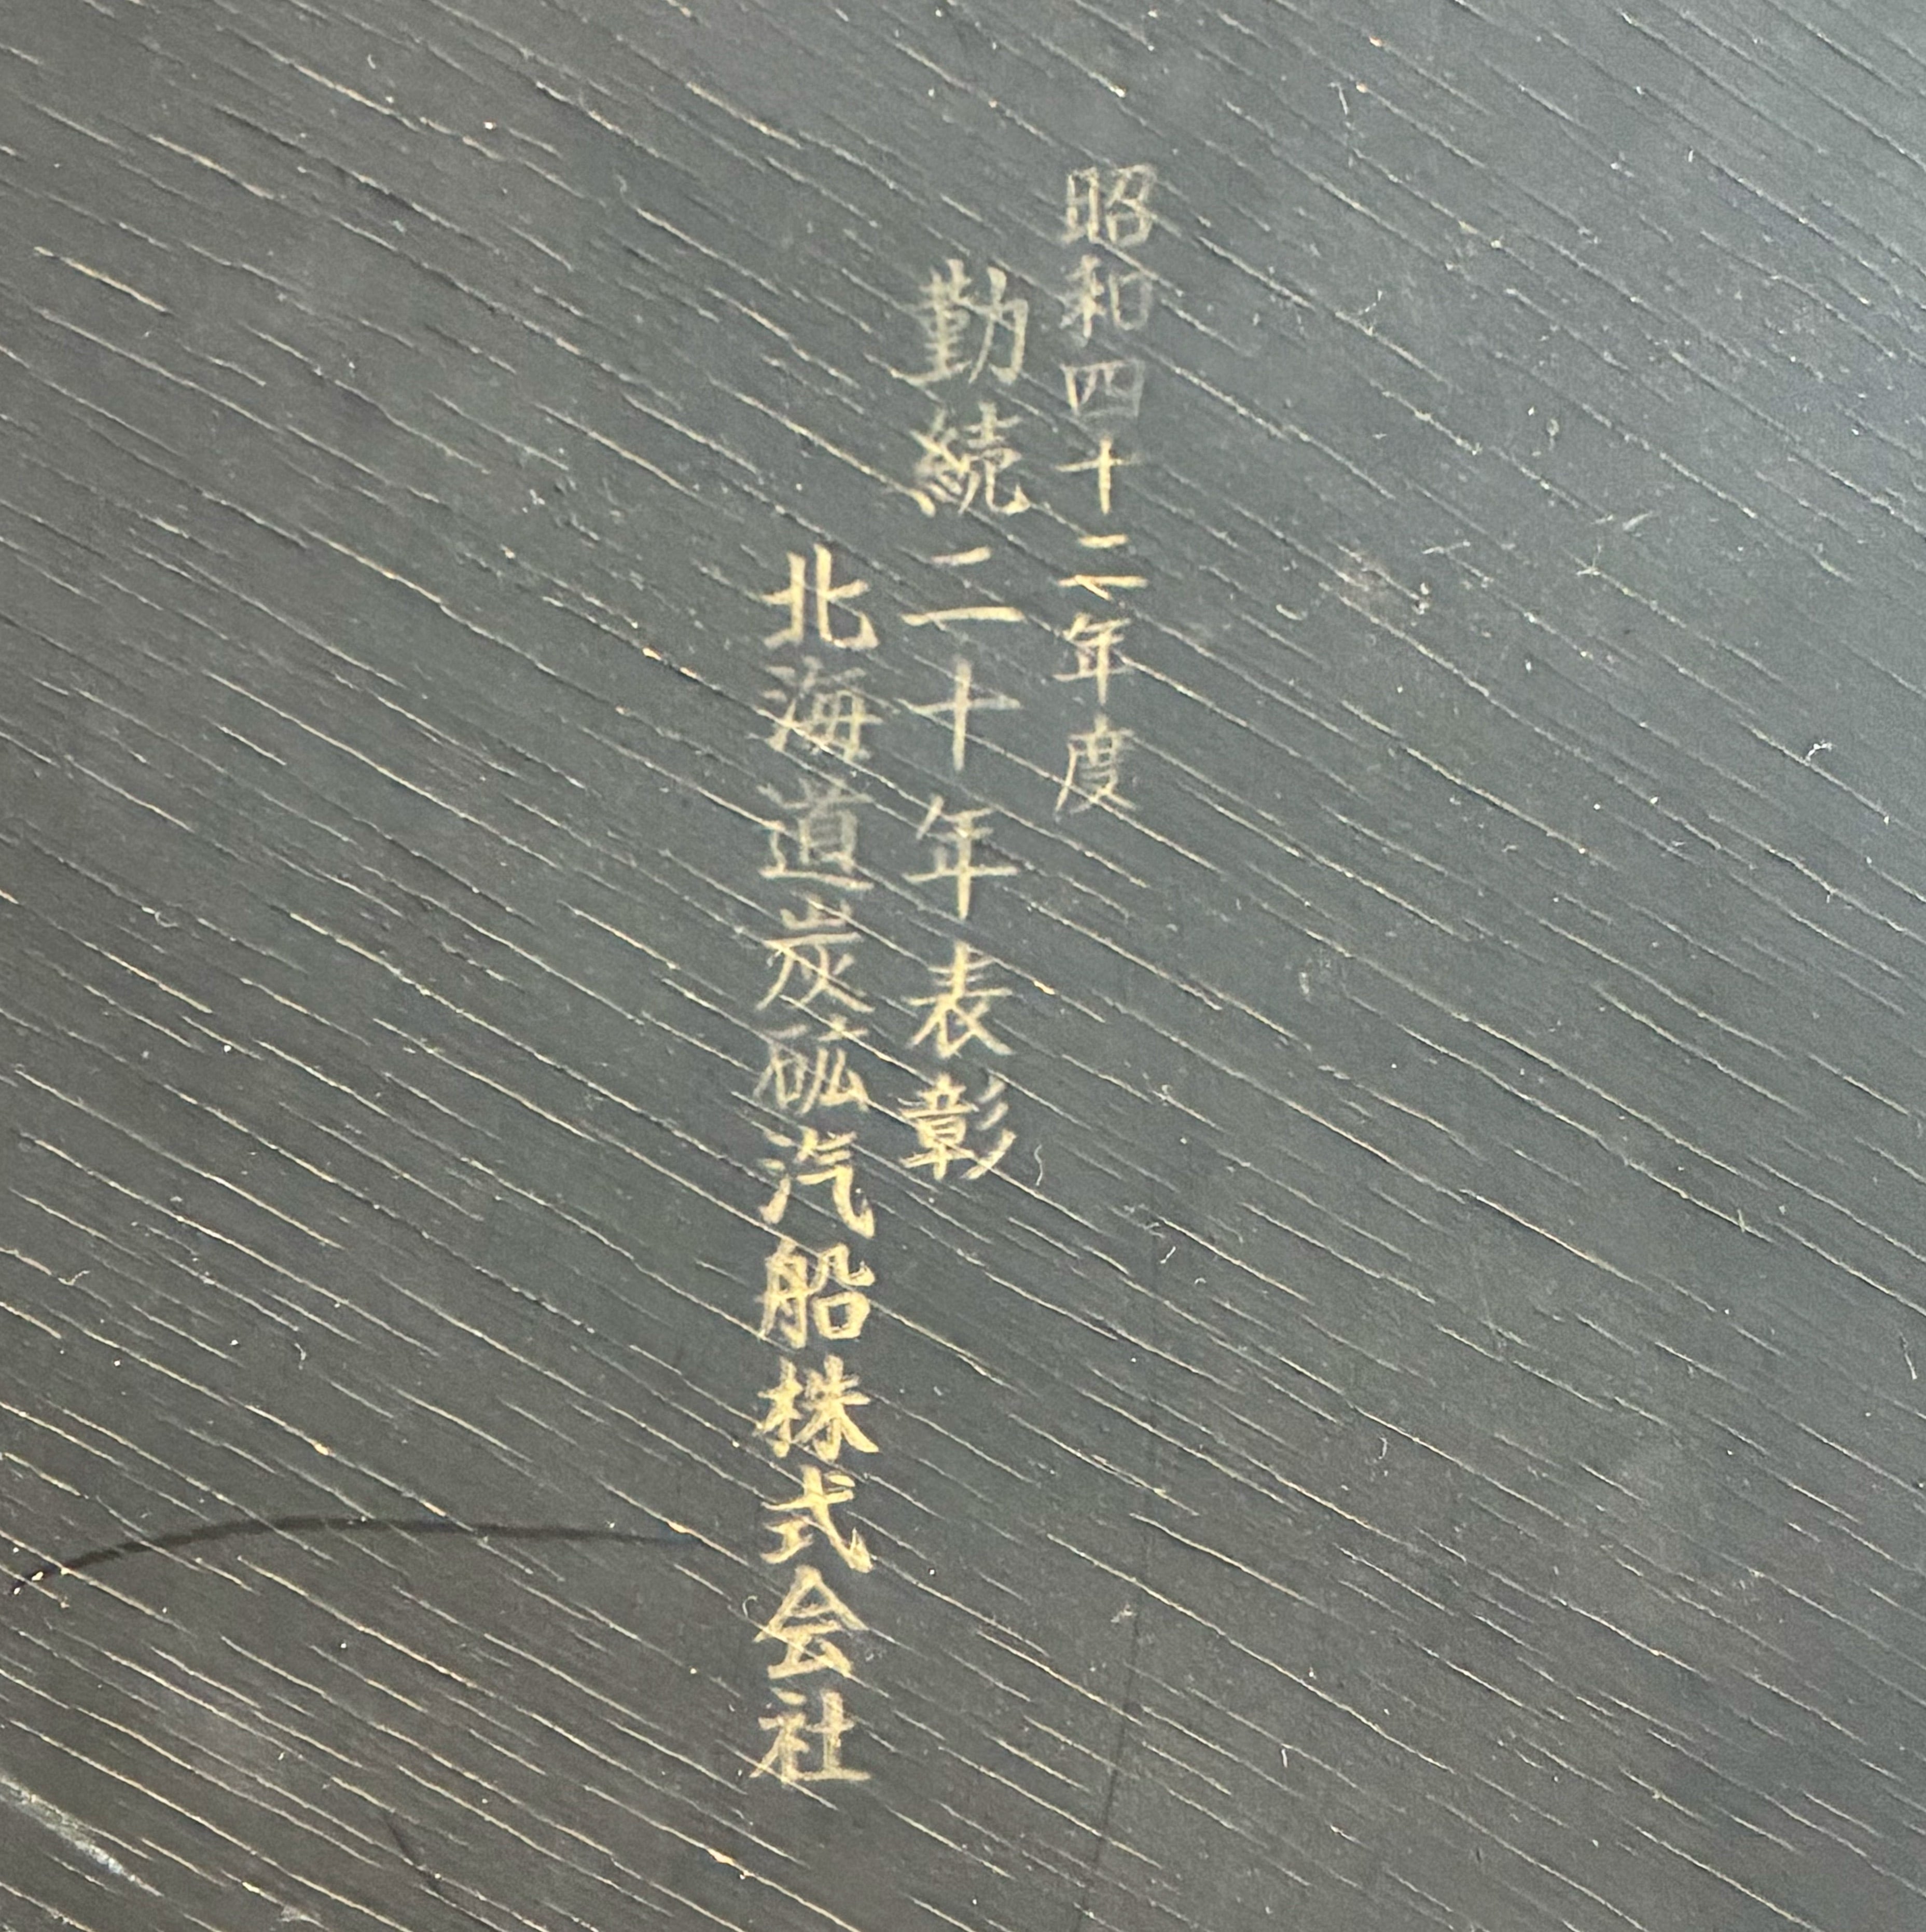 昭和四十二年度
勤続二十年表彰
北海道炭砿汽船株式会社